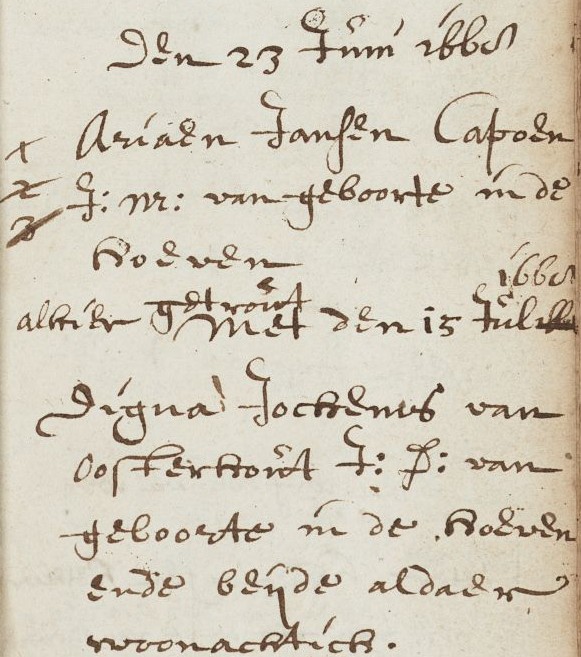 Den 23 Junii 1668
Ariaen Jansen Capoen
1 2 3
J: M: van geboorte in de
Hoeven
1668
alhier getrout den 15 Julii
Met
Digna Jochems van
Oosterhout J: D: van
geboorte in de Hoeven
ende beijde aldaer
woonachtich.